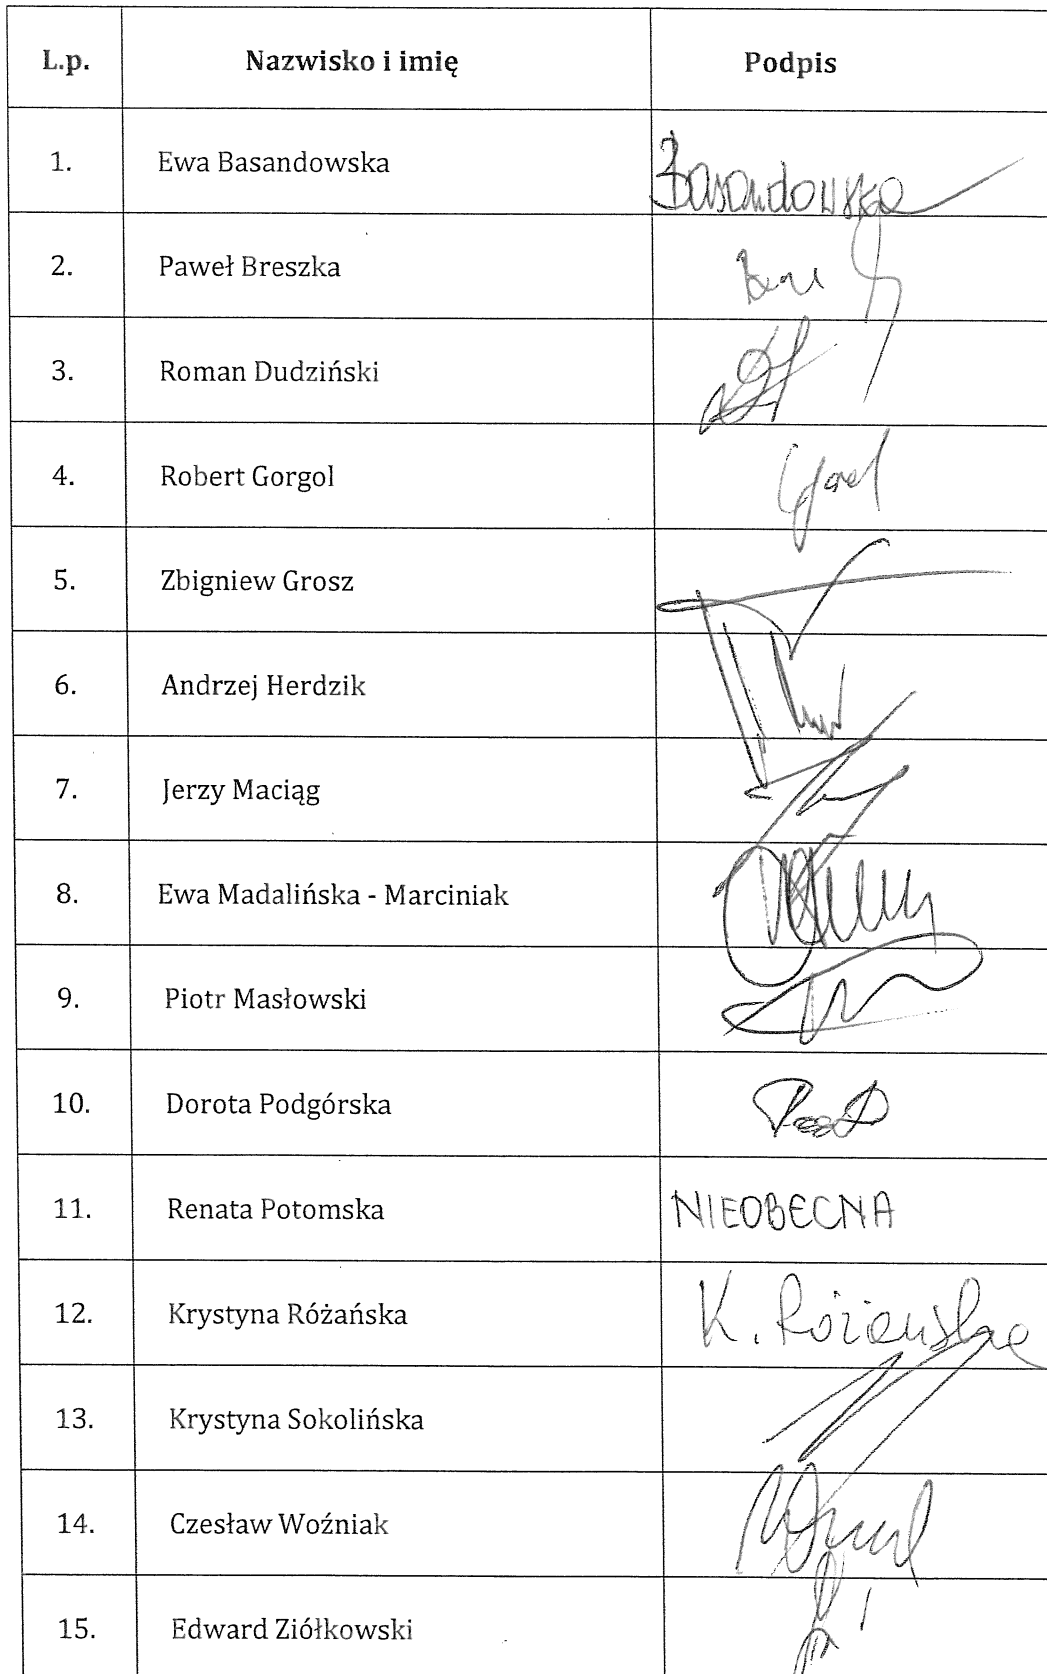 L.p. Nazwisko i imię Podpis
1. Ewa Basandowska Basandowska
2. Paweł Breszka
3. Roman Dudziński
4. Robert Gorgol
5. Zbigniew Grosz
6. Andrzej Herdzik
7. Jerzy Maciąg
8. Ewa Madalińska - Marciniak
9. Piotr Masłowski
10. Dorota Podgórska
11. Renata Potomska NIEOBECNA
12. Krystyna Różańska K. Różańska
13. Krystyna Sokolińska
14. Czesław Woźniak
15. Edward Ziółkowski